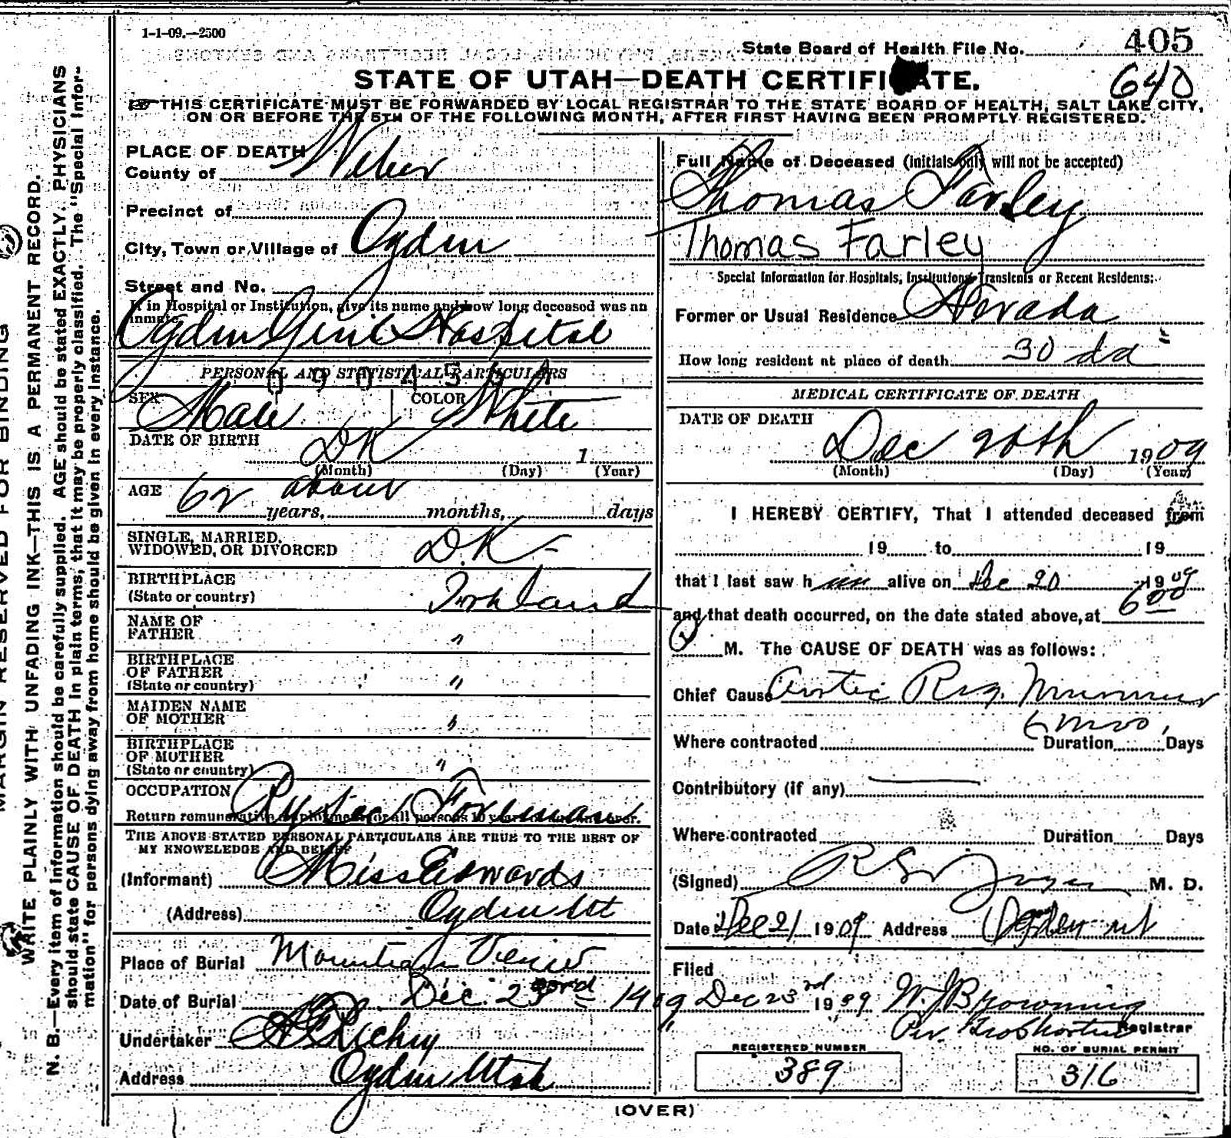 1-1-09.—2500
State Board of Health File No. 405
640
STATE OF UTAH—DEATH CERTIFICATE.
THIS CERTIFICATE MUST BE FORWARDED BY LOCAL REGISTRAR TO THE STATE BOARD OF HEALTH, SALT LAKE CITY,
ON OR BEFORE THE 5TH OF THE FOLLOWING MONTH, AFTER FIRST HAVING BEEN PROMPTLY REGISTERED.
MARGIN RESERVED FOR BINDING
WRITE PLAINLY WITH UNFADING INK—THIS IS A PERMANENT RECORD.
N. B.—Every item of information should be carefully supplied. AGE should be stated EXACTLY. PHYSICIANS
should state CAUSE OF DEATH in plain terms, that it may be properly classified. The "Special Infor-
mation" for persons dying away from home should be given in every instance.
PLACE OF DEATH
County of Weber
Precinct of
City, Town or Village of Ogden
Street and No.
If in Hospital or Institution, give its name and how long deceased was an
inmate.
Ogden Genl Hospital
PERSONAL AND STATISTICAL PARTICULARS
SEX Male COLOR White
DATE OF BIRTH DK 1
(Month) (Day) (Year)
AGE 62 about
years, months, days
SINGLE, MARRIED,
WIDOWED, OR DIVORCED D.K-
BIRTHPLACE
(State or country)
NAME OF
FATHER "
BIRTHPLACE
OF FATHER
(State or country) "
MAIDEN NAME
OF MOTHER "
BIRTHPLACE
OF MOTHER
(State or country) "
OCCUPATION Foreman
Return remunerative employment for all persons 10 years of age or over.
THE ABOVE STATED PERSONAL PARTICULARS ARE TRUE TO THE BEST OF
MY KNOWELEDGE AND BELIEF
(Informant) Miss Edwards
(Address) Ogden Ut
Place of Burial Mountain View
Date of Burial Dec 23rd 1909
Undertaker Richey
Address Ogden Utah
Full Name of Deceased (initials only will not be accepted)
Thomas Farley
Thomas Farley
Special Information for Hospitals, Institutions, Transients or Recent Residents:
Former or Usual Residence Nevada
How long resident at place of death 30 da
MEDICAL CERTIFICATE OF DEATH
DATE OF DEATH
Dec 20th 1909
(Month) (Day) (Year)
I HEREBY CERTIFY, That I attended deceased from
19 to 19
that I last saw him alive on Dec 20 1909
and that death occurred, on the date stated above, at 6 00
M. The CAUSE OF DEATH was as follows:
Chief Cause Aortic Reg. Murmur
6 mos,
Where contracted Duration Days
Contributory (if any)
Where contracted Duration Days
(Signed) M. D.
Date Dec 21 1909 Address Ogden Ut
Filed
Dec 23rd 1909 W J Browning
Registrar
REGISTERED NUMBER
389
NO. OF BURIAL PERMIT
316
(OVER)